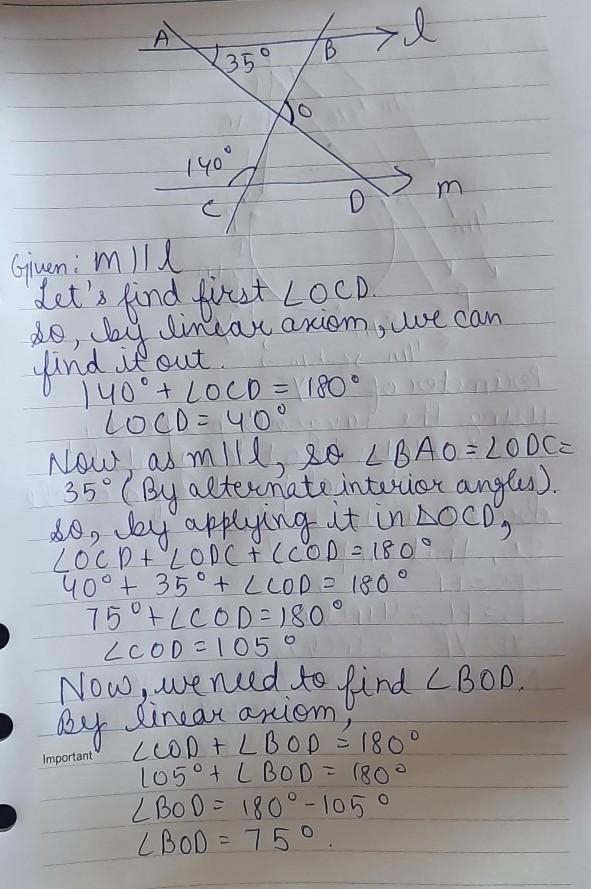 A 35° B l
O
140°
C D m
Given: m || l
Let's find first ∠OCD.
So, by linear axiom, we can
find it out.
140° + ∠OCD = 180°
∠OCD = 40°
Now, as m || l, so ∠BAO = ∠ODC =
35° (By alternate interior angles).
So, by applying it in △OCD,
∠OCD + ∠ODC + ∠COD = 180°
40° + 35° + ∠COD = 180°
75° + ∠COD = 180°
∠COD = 105°
Now, we need to find ∠BOD.
By linear axiom,
Important ∠COD + ∠BOD = 180°
105° + ∠BOD = 180°
∠BOD = 180° - 105°
∠BOD = 75°.